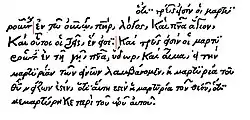 ὅτι τρεῖς εἰσιν οἱ μαρτυ
ροῦντες ἐν τῷ οὐνῷ, πηρ, λόγος, καὶ πνα ἅγιον,
Καὶ οὗτοι οἱ τρεῖς, ἕν εἰσι· Καὶ τρεῖς εἰσιν οἱ μαρτυ
ροῦντες ἐν τῇ γῇ, πνα, ὕδωρ, Καὶ αἷμα, εἰ τὴν
μαρτυρίαν τῶν ἀνων λαμβάνομεν, ἡ μαρτυρία τοῦ
θυ μείζων ἐστίν, ὅτι αὕτη ἐστὶν ἡ μαρτυρία τοῦ θυ, ὅτι
μεμαρτύρηκε περὶ τοῦ υυ αὐτοῦ.